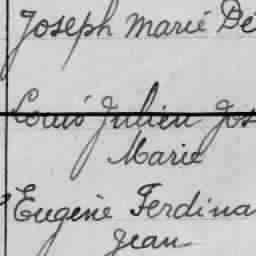 Joseph Marie Dé
Louis Julien Jos
Marie
Eugène Ferdina
Jean